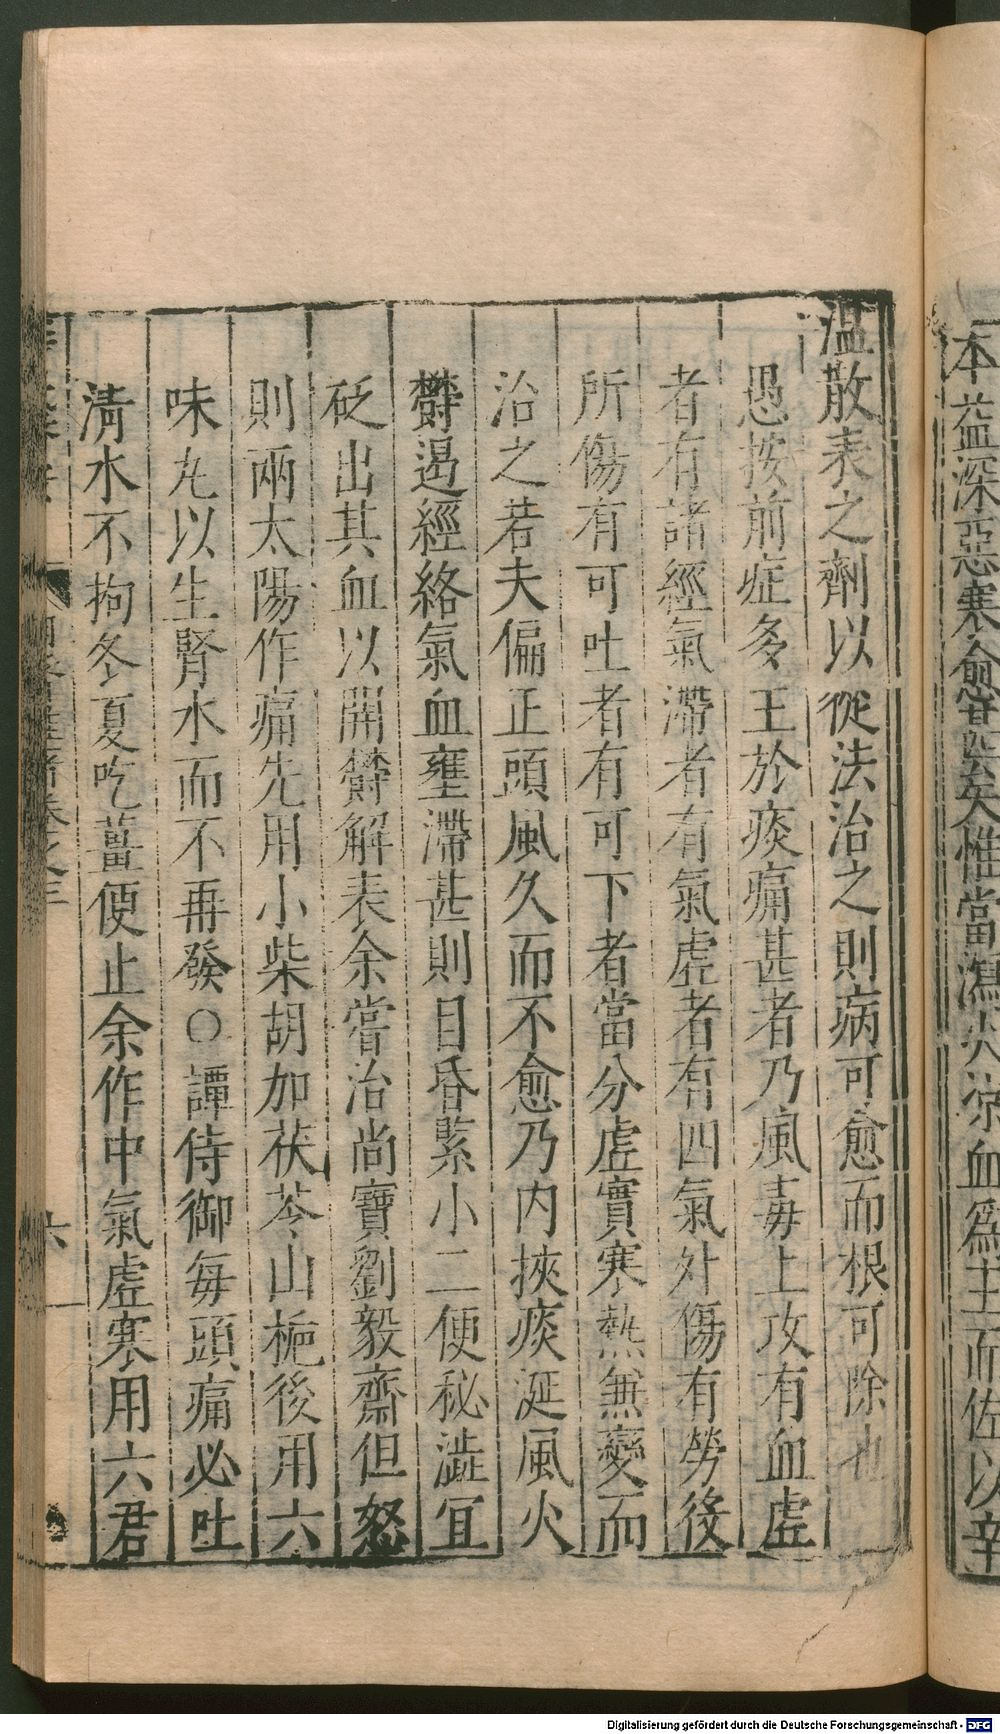 本益深惡寒愈甚矣惟當瀉火凉血爲主而佐以辛
温散表之劑以從法治之則病可愈而根可除也
愚按前症多主於痰痛甚者乃風毒上攻有血虛
者有諸經氣滯者有氣虛者有四氣外傷有勞役
所傷有可吐者有可下者當分虛實寒熱無變而
治之若夫偏正頭風久而不愈乃内挾痰涎風火
欝遏經絡氣血壅滯甚則目昏緊小二便秘澁宜
砭出其血以開欝解表余嘗治尚寶劉毅齋但怒
則兩太陽作痛先用小柴胡加茯苓山梔後用六
味丸以生腎水而不再發○譚侍御每頭痛必吐
清水不拘冬夏吃薑便止余作中氣虛寒用六君
卷之三
六
Digitalisierung gefördert durch die Deutsche Forschungsgemeinschaft - DFG